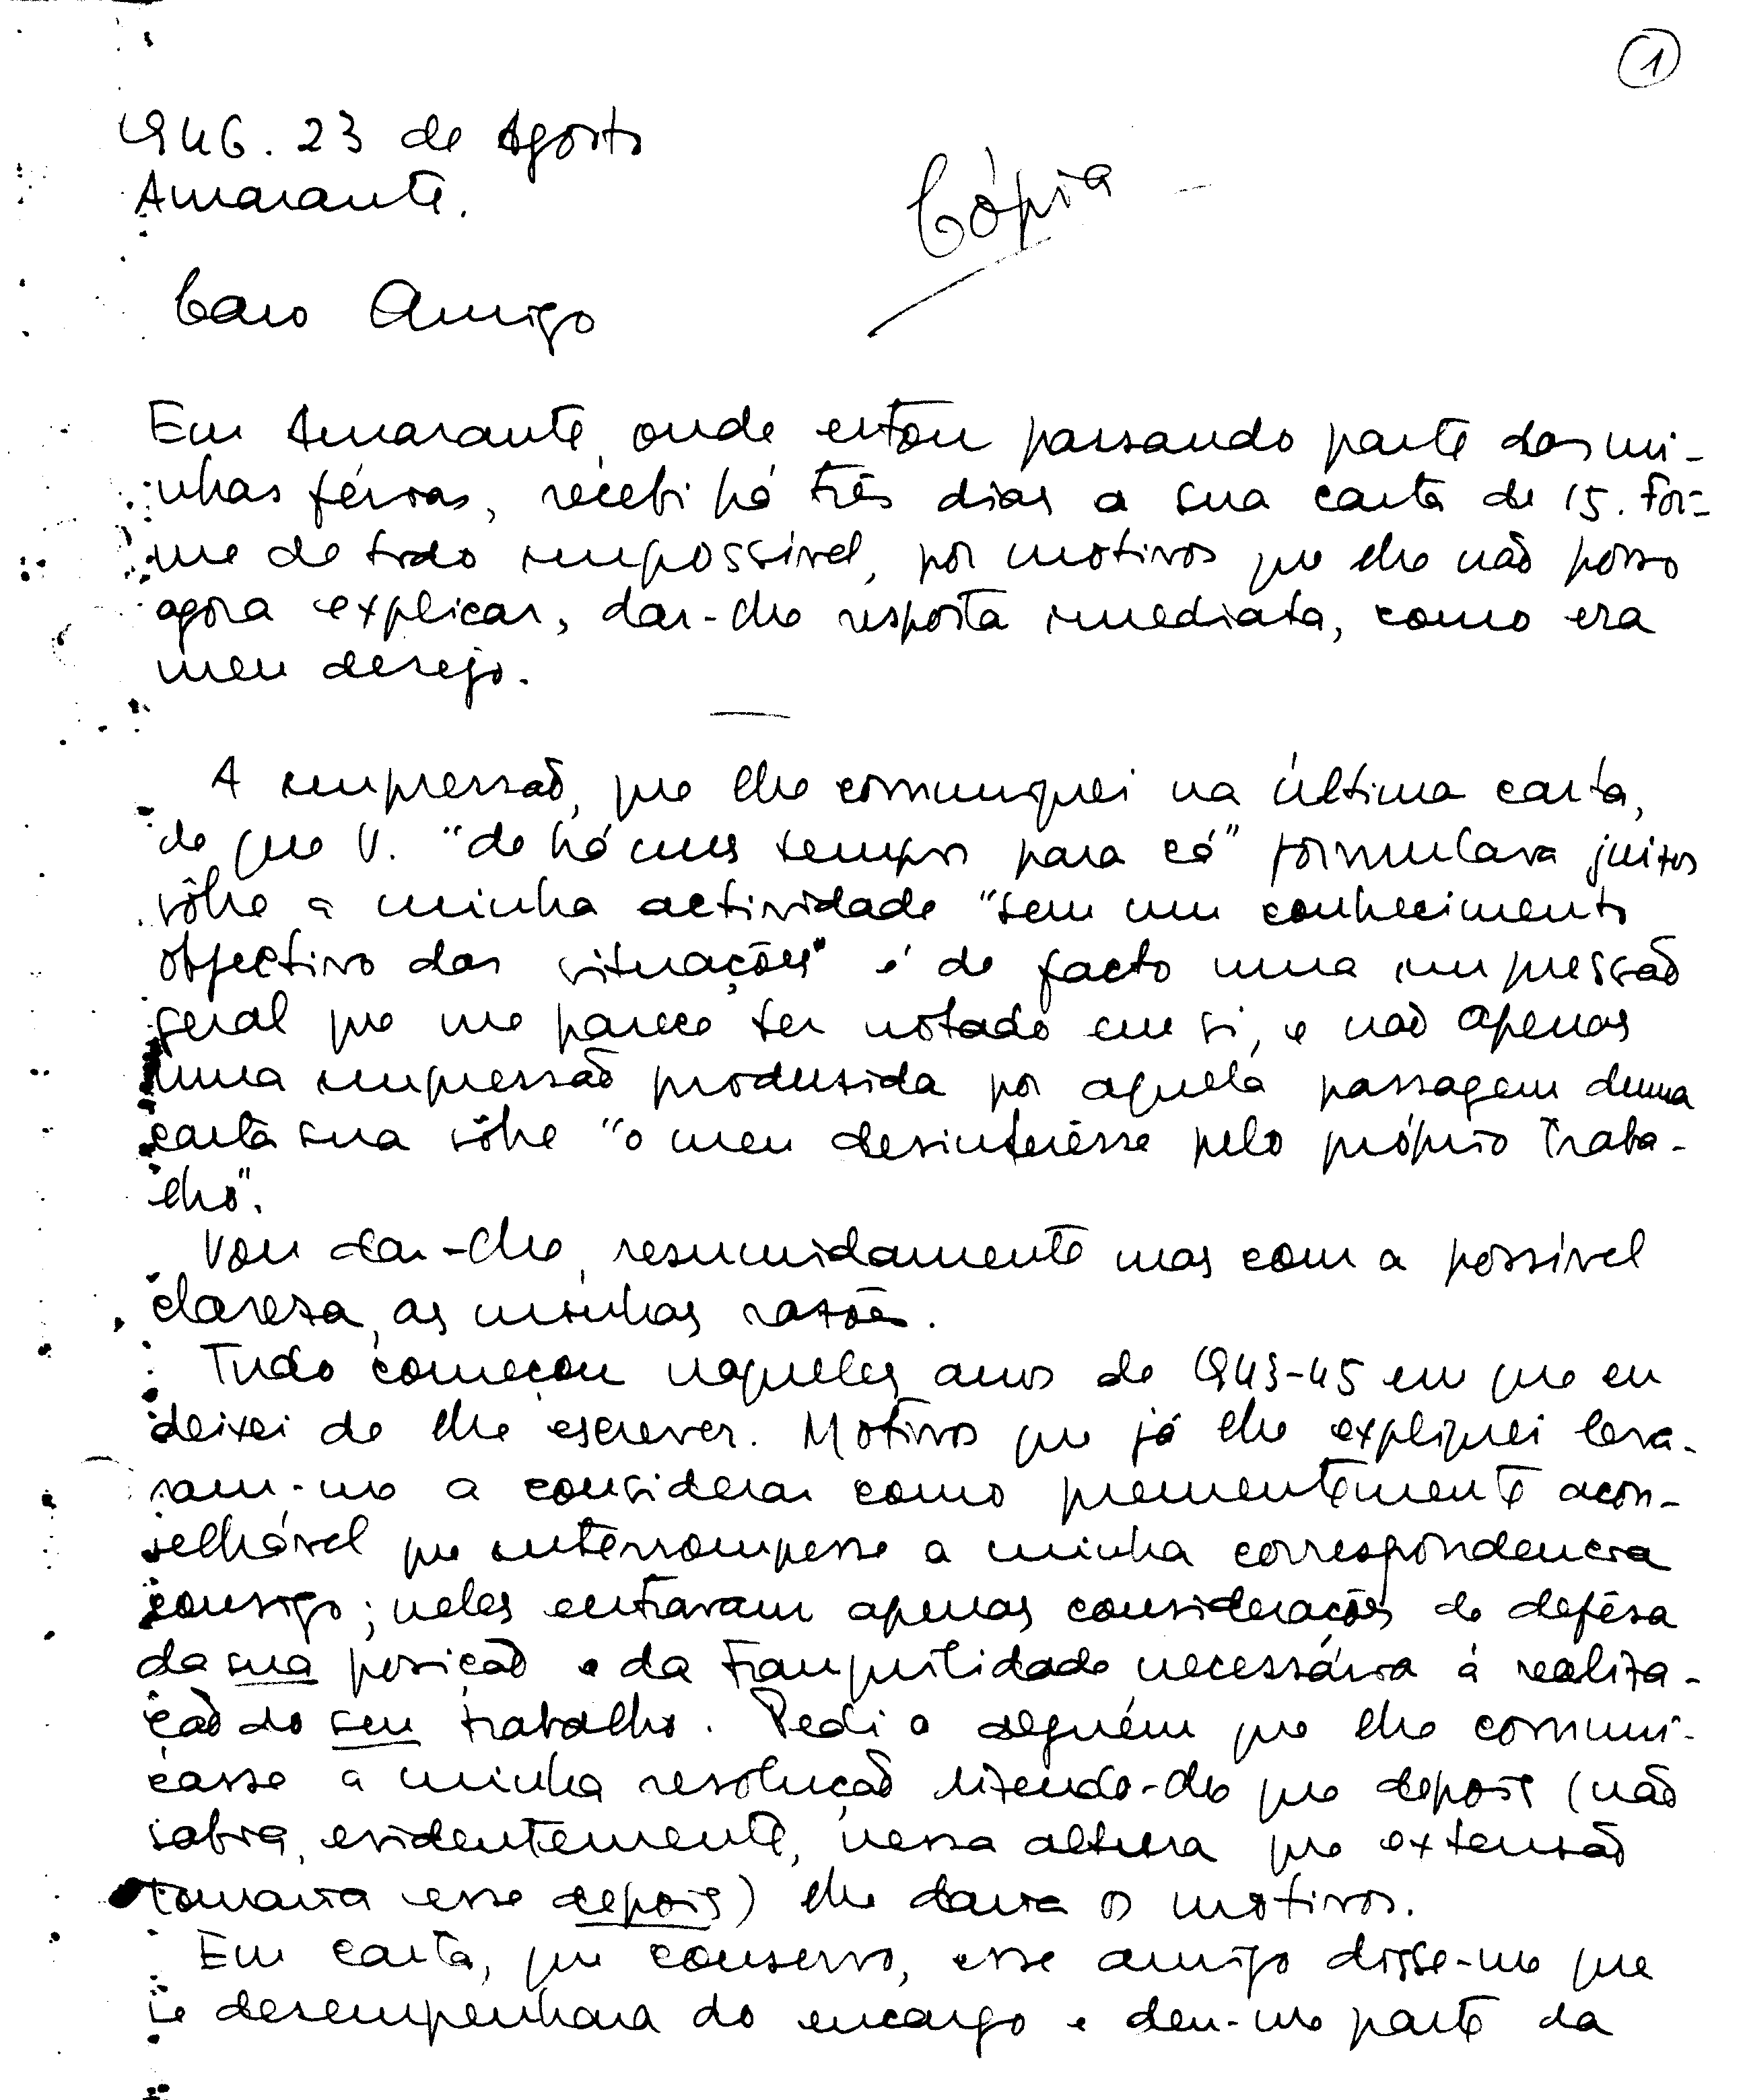 1
1946. 23 de Agosto
Amarante.
Cópia
Caro Amigo
Em Amarante, onde estou passando parte das mi-
nhas férias, recebi há três dias a sua carta de 15. Foi-
me de todo impossível, por motivos que lhe não posso
agora explicar, dar-lhe resposta imediata, como era
meu desejo.
A impressão, que lhe comuniquei na última carta,
de que V. "de há uns tempos para cá" formulava juízos
sôbre a minha actividade "sem um conhecimento
objectivo das situações" é de facto uma impressão
geral que me parece ter notado em si, e não apenas
uma impressão produzida por aquela passagem duma
carta sua sôbre "o meu desinterêsse pelo próprio traba-
lho".
Vou dar-lhe, resumidamente mas com a possível
clareza, as minhas razões.
Tudo começou naqueles anos de 1943-45 em que eu
deixei de lhe escrever. Motivos que já lhe expliquei leva-
ram-me a considerar como prementemente acon-
selhável que interrompesse a minha correspondencia
consigo; neles entravam apenas considerações de defêsa
da sua posição e da tranquilidade necessária à realiza-
ção do seu trabalho. Pedi a alguém que lhe comuni-
casse a minha resolução dizendo-lhe que depois (não
sabia, evidentemente, nessa altura que extensão
tomaria esse depois) lhe daria os motivos.
Em carta, que conservo, esse amigo disse-me que
se desempenhara do encargo e deu-me parte da